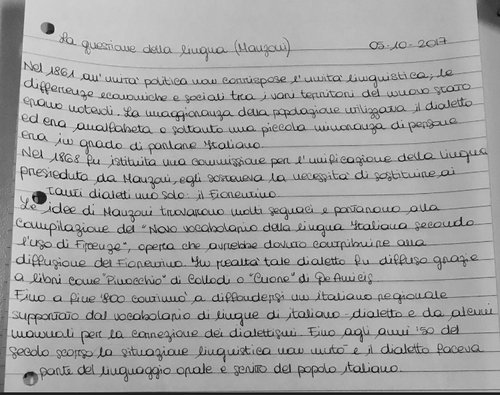 La questione della lingua (Manzoni) 05-10-2017
Nel 1861 all'unita' politica non corrispose l'unita' linguistica; le
differenze economiche e sociali tra i vari territori del nuovo stato
erano notevoli. La maggioranza della popolazione utilizzava il dialetto
ed era analfabeta e soltanto una piccola minoranza di persone
era in grado di parlare Italiano.
Nel 1868 fu istituita una commissione per l'unificazione della lingua
presieduta da Manzoni, egli sosteneva la necessita' di sostituire ai
tanti dialetti uno solo: il Fiorentino
Le idee di Manzoni trovarono molti seguaci e portarono alla
compilazione del "Novo vocabolario della lingua Italiana secondo
l'uso di Firenze", opera che avrebbe dovuto contribuire alla
diffusione del Fiorentino. In realta' tale dialetto fu diffuso grazie
a libri come "Pinocchio" di Collodi o "Cuore" di De Amicis
Fino a fine '800 continuo' a diffondersi un italiano regionale
supportato dal vocabolario di lingue di italiano-dialetto e da alcuni
manuali per la correzione dei dialettismi. Fino agli anni '50 del
secolo scorso la situazione linguistica non muto' e il dialetto faceva
parte del linguaggio orale e scritto del popolo italiano.